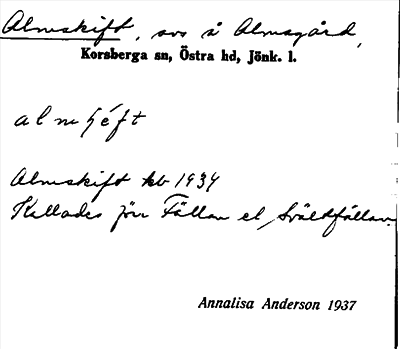 Almskift, svs å Almsgård,
Korsberga sn, Östra hd, Jönk. l.
Almskift kb 1934
Kallades förr Fällan el. Svältfällan.
Annalisa Anderson 1937